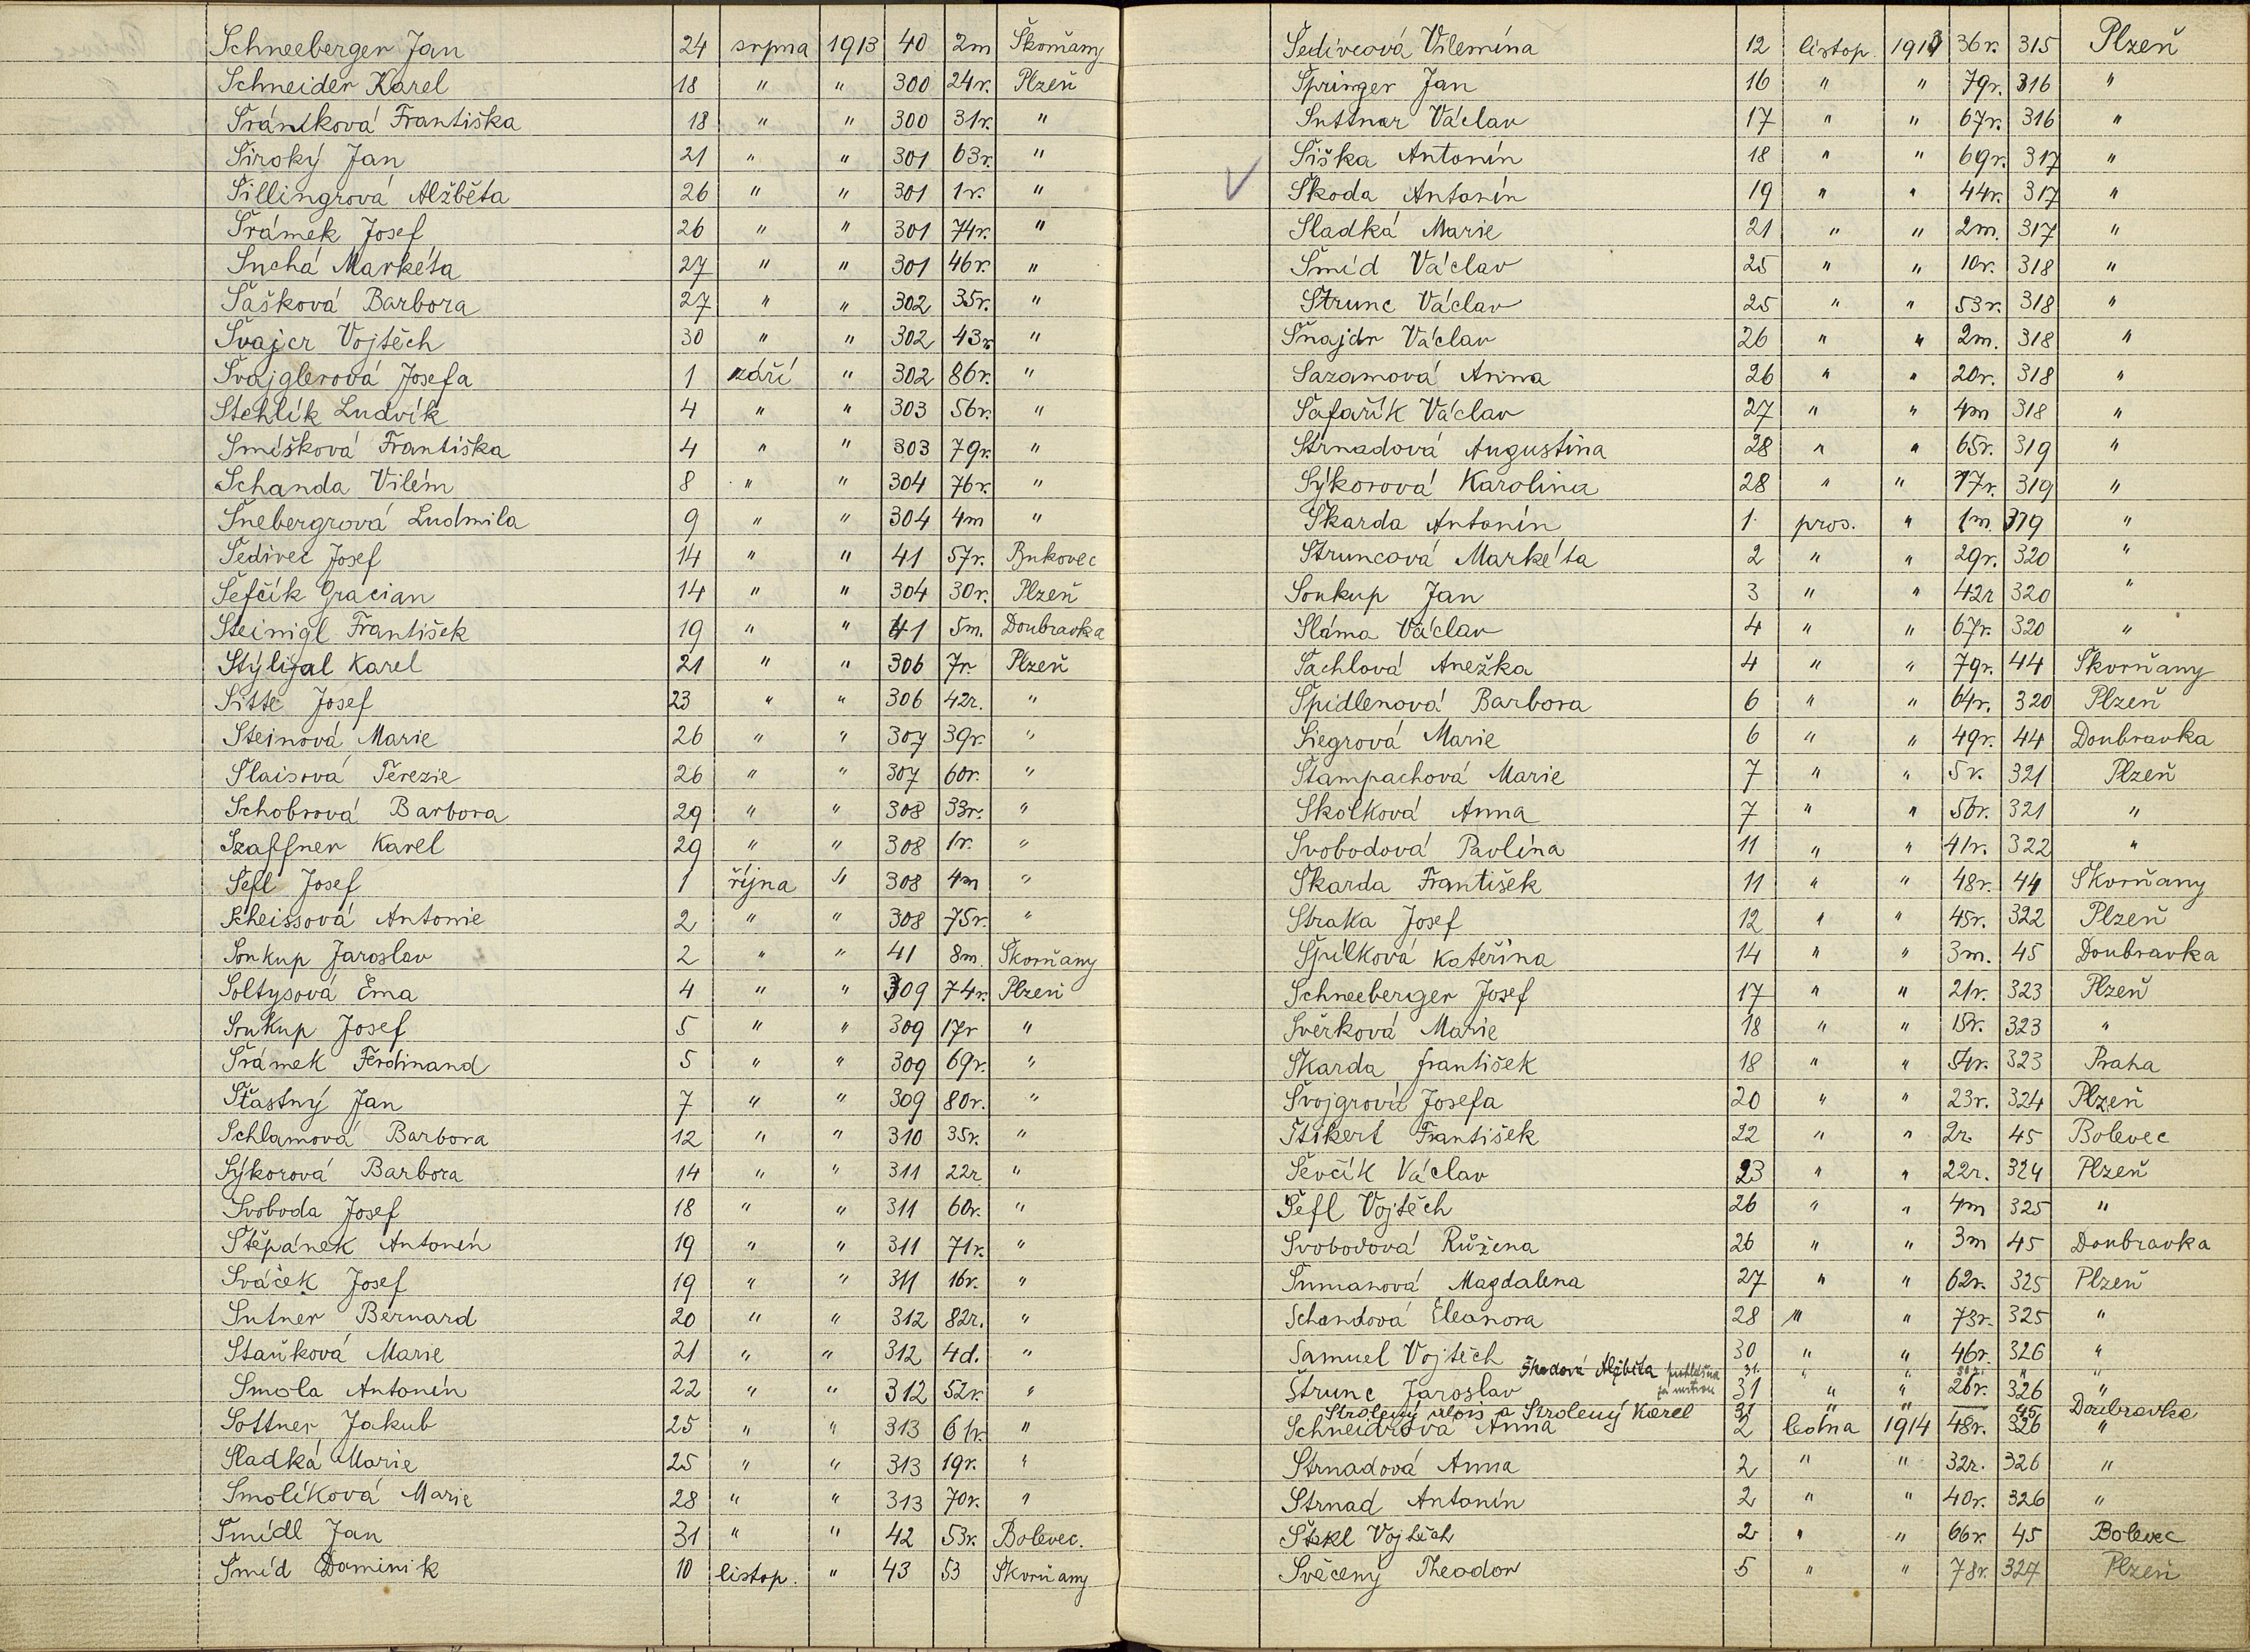 Schneeberger Jan 24 srpna 1913 40 2m Škorňany
Schneider Karel 18 " " 300 24r. Plzeň
Šrámková Františka 18 " " 300 31r. "
Široký Jan 21 " " 301 63r. "
Šillingrová Alžběta 26 " " 301 1r. "
Šrámek Josef 26 " " 301 74r. "
Suchá Markéta 27 " " 301 46r. "
Šašková Barbora 27 " " 302 35r. "
Švajcr Vojtěch 30 " " 302 43r "
Švajglerová Josefa 1 září " 302 86r. "
Stehlík Ludvík 4 " " 303 56r. "
Smíšková Františka 4 " " 303 79r. "
Schanda Vilém 8 " " 304 76r. "
Šnebergrová Ludmila 9 " " 304 4m "
Šedivec Josef 14 " " 41 57r. Bukovec
Šefčík Gracian 14 " " 304 30r. Plzeň
Steinigl František 19 " " 41 5m. Doubravka
Karel 21 " " 306 7r. Plzeň
Sitte Josef 23 " " 306 42r. "
Steinová Marie 26 " " 307 39r. "
Šlaisová Terezie 26 " " 307 60r. "
Schobrová Barbora 29 " " 308 33r. "
Szaffner Karel 29 " " 308 1r. "
Šefl Josef 1 října " 308 4m "
Scheissová Antonie 2 " " 308 75r. "
Soukup Jaroslav 2 " " 41 8m. Škorňany
Šoltysová Ema 4 " " 309 74r. Plzeň
Soukup Josef 5 " " 309 17r "
Šrámek Ferdinand 5 " " 309 69r. "
Šťastný Jan 7 " " 309 80r. "
Schlamová Barbora 12 " " 310 35r. "
Sýkorová Barbora 14 " " 311 22r "
Svoboda Josef 18 " " 311 60r. "
Štěpánek Antonín 19 " " 311 71r. "
Sváček Josef 19 " " 311 16r. "
Sutner Bernard 20 " " 312 82r. "
Staňková Marie 21 " " 312 4d. "
Smola Antonín 22 " " 312 52r. "
Sottner Jakub 25 " " 313 61r. "
Sladká Marie 25 " " 313 19r. "
Smolíková Marie 28 " " 313 70r. "
Šmídl Jan 31 " " 42 53r. Bolevec.
Šmíd Dominik 10 listop. " 43 53 Škorňany
Šedivcová Vilemína 12 listop. 1913 36r. 315 Plzeň
Špringer Jan 16 " " 79r. 316 "
Suttner Václav 17 " " 67r. 316 "
Šiška Antonín 18 " " 69r. 317 "
Škoda Antonín 19 " " 44r. 317 "
Sladká Marie 21 " " 2m. 317 "
Šmíd Václav 25 " " 10r. 318 "
Strunc Václav 25 " " 53r. 318 "
Šnajdr Václav 26 " " 2m. 318 "
Sazamová Anna 26 " " 20r. 318 "
Šafařík Václav 27 " " 4m 318 "
Strnadová Augustina 28 " " 65r. 319 "
Sýkorová Karolina 28 " " 17r. 319 "
Škarda Antonín 1 pros. " 1m. 319 "
Struncová Markéta 2 " " 29r. 320 "
Soukup Jan 3 " " 42r 320 "
Sláma Václav 4 " " 67r. 320 "
Šachlová Anežka 4 " " 79r. 44 Škorňany
Špidlenová Barbora 6 " " 64r. 320 Plzeň
Siegrová Marie 6 " " 49r. 44 Doubravka
Štampachová Marie 7 " " 5r. 321 Plzeň
Skolková Anna 7 " " 56r. 321 "
Svobodová Pavlína 11 " " 41r. 322 "
Škarda František 11 " " 48r. 44 Škorňany
Straka Josef 12 " " 45r. 322 Plzeň
Špilková Kateřina 14 " " 3m. 45 Doubravka
Schneeberger Josef 17 " " 21r. 323 Plzeň
Švěrková Marie 18 " " 15r. 323 "
Škarda František 18 " " 54r. 323 Praha
Švojgrová Josefa 20 " " 23r. 324 Plzeň
Štikert František 22 " " 2r. 45 Bolevec
Ševčík Václav 23 " " 22r. 324 Plzeň
Šefl Vojtěch 26 " " 4m 325 "
Svobodová Růžena 26 " " 3m 45 Doubravka
Šumanová Magdalena 27 " " 62r. 325 Plzeň
Schandová Eleanora 28 " " 73r. 325 "
Samuel Vojtěch 30 " " 46r. 326 "
Škodová Alžběta prohlášena za mrtvou 31. " " "
Štrunc Jaroslav 31 " " 26r. 326 "
Strolený Alois a Strolený Karel 31 " " — 45 Doubravka
Schneidrová Anna 2 ledna 1914 48r. 326 "
Strnadová Anna 2 " " 32r. 326 "
Strnad Antonín 2 " " 40r. 326 "
Štekl Vojtěch 2 " " 66r. 45 Bolevec
Svěcený Theodor 5 " " 78r. 327 Plzeň